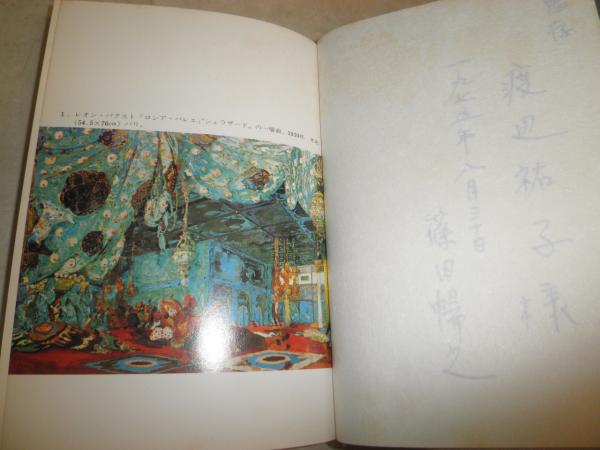 1. レオン・バクスト「ロシア・バレエ」"シェラザード"の一場面、1910年
(54.5×76cm) パリ。
恵存
渡辺祐子様
一九七五年八月三十日
篠田暢之